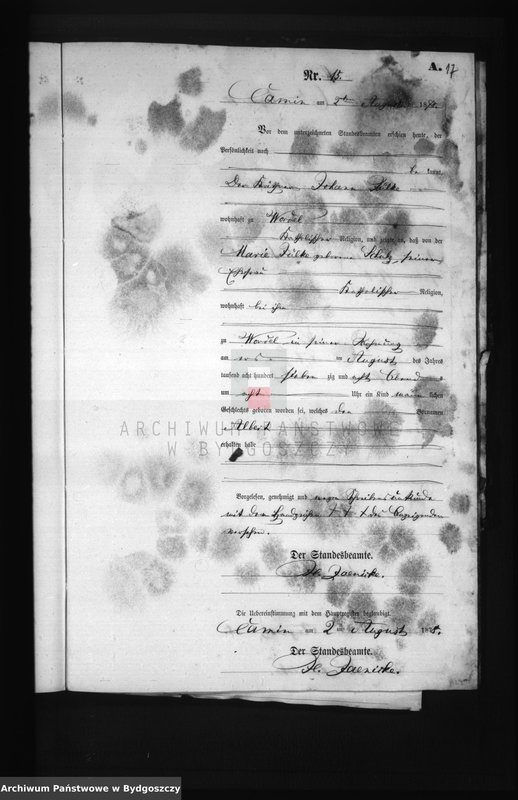 A. 17
Nr. 15.
Camin am 2ten August 187
Vor dem unterzeichneten Standesbeamten erschien heute, der
Persönlichkeit nach
be kannt,
Der Johann
wohnhaft zu
Katholischer Religion, und zeigte an, daß von der
Marie geborene seiner
Ehefrau
Katholischer Religion,
wohnhaft bei ihm
zu in seiner Wohnung
am August des Jahres
tausend acht hundert sieben zig und acht Abends
um acht Uhr ein Kind männ lichen
Geschlechts geboren worden sei, welches den Vornamen
Albert
erhalten habe
ARCHIWUM PAŃSTWOWE
W BYDGOSZCZY
Vorgelesen, genehmigt und wegen Schreibensunkunde
mit den Handzeichen + + + des Anzeigenden
versehen.
Der Standesbeamte.
Jaenicke.
Die Uebereinstimmung mit dem Hauptregister beglaubigt.
Camin am 2 August 187
Der Standesbeamte.
Jaenicke.
Archiwum Państwowe w Bydgoszczy